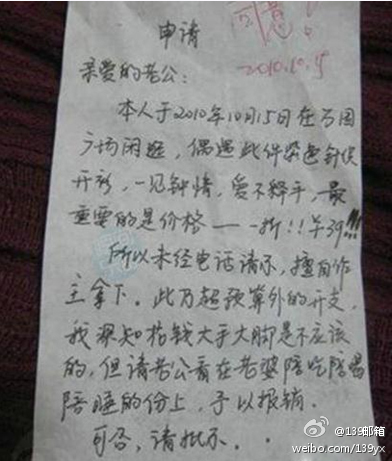 申请
同意!
2010.10.15
亲爱的老公:
本人于2010年10月15日在万国
广场闲逛,偶遇此件紫色针织
开衫,一见钟情,爱不释手,最
重要的是价格——一折!!￥39!!!
所以未经电话请示,擅自作
主拿下。此乃超预算外的开支,
我深知花钱大手大脚是不应该
的,但请老公看在老婆陪吃陪喝
陪睡的份上,予以报销.
可否,请批示..
@139邮箱
weibo.com/139yx